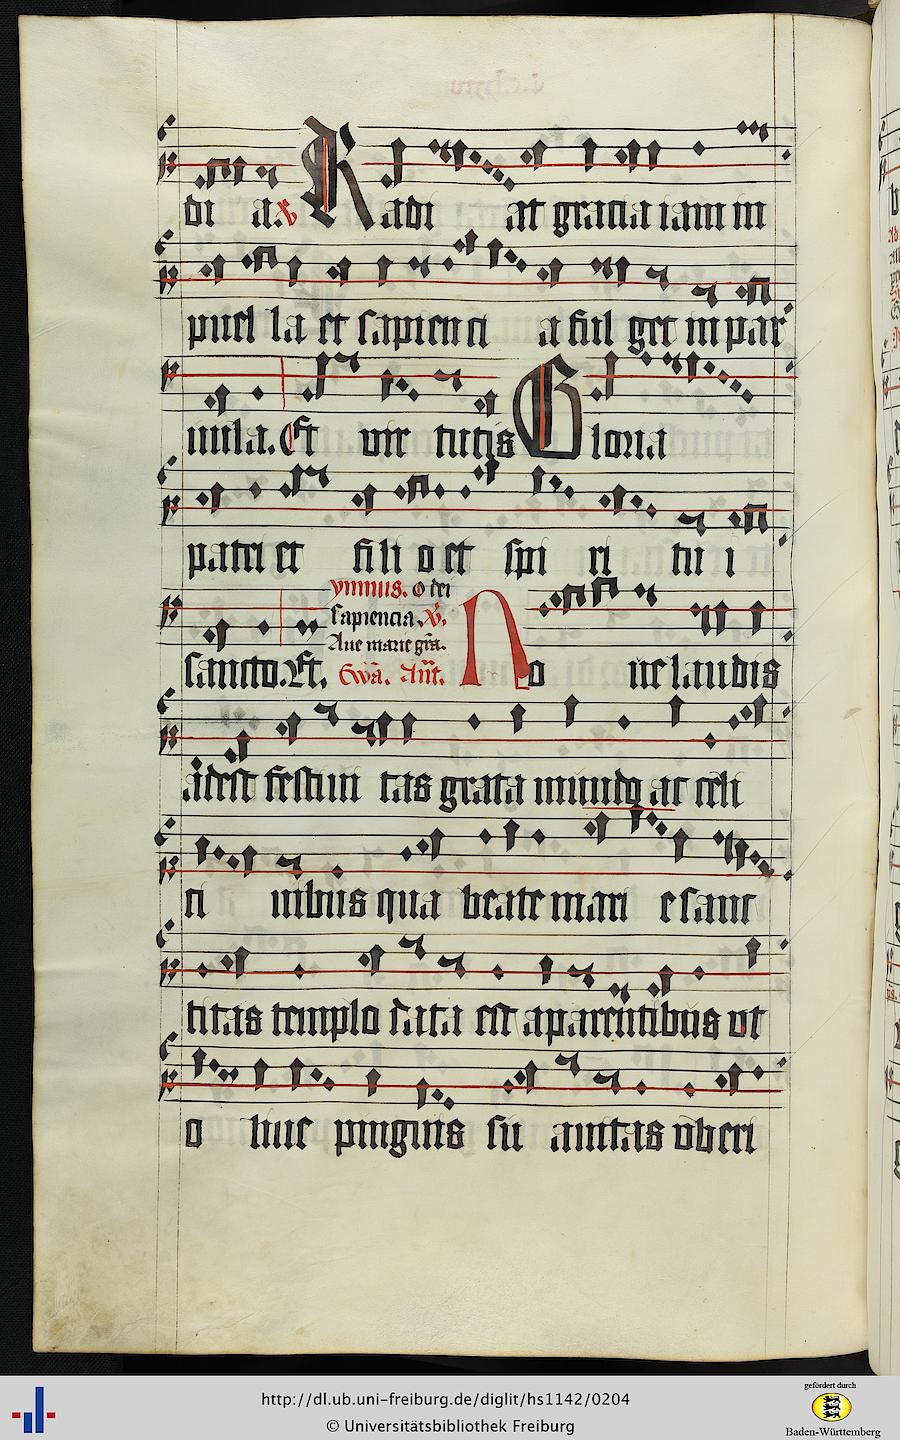 di a ℣ Radi at gracia iam in
puel la et sapien ci a ful get in par
uula. Et vir tutis Gloria
patri et fili o et spi ri tu i
sancto. Et. ymnus. o dei
sapiencia. ℣.
Aue marie gr̄a.
Ewā. An̄t. No ue laudis
adest festiui tas grata mundo ac celi
ci nibus qua beate mari e sanc
titas templo data est a parentibus vt
o liue pinguis su auitas vberi
http://dl.ub.uni-freiburg.de/diglit/hs1142/0204
© Universitätsbibliothek Freiburg
gefördert durch
Baden-Württemberg